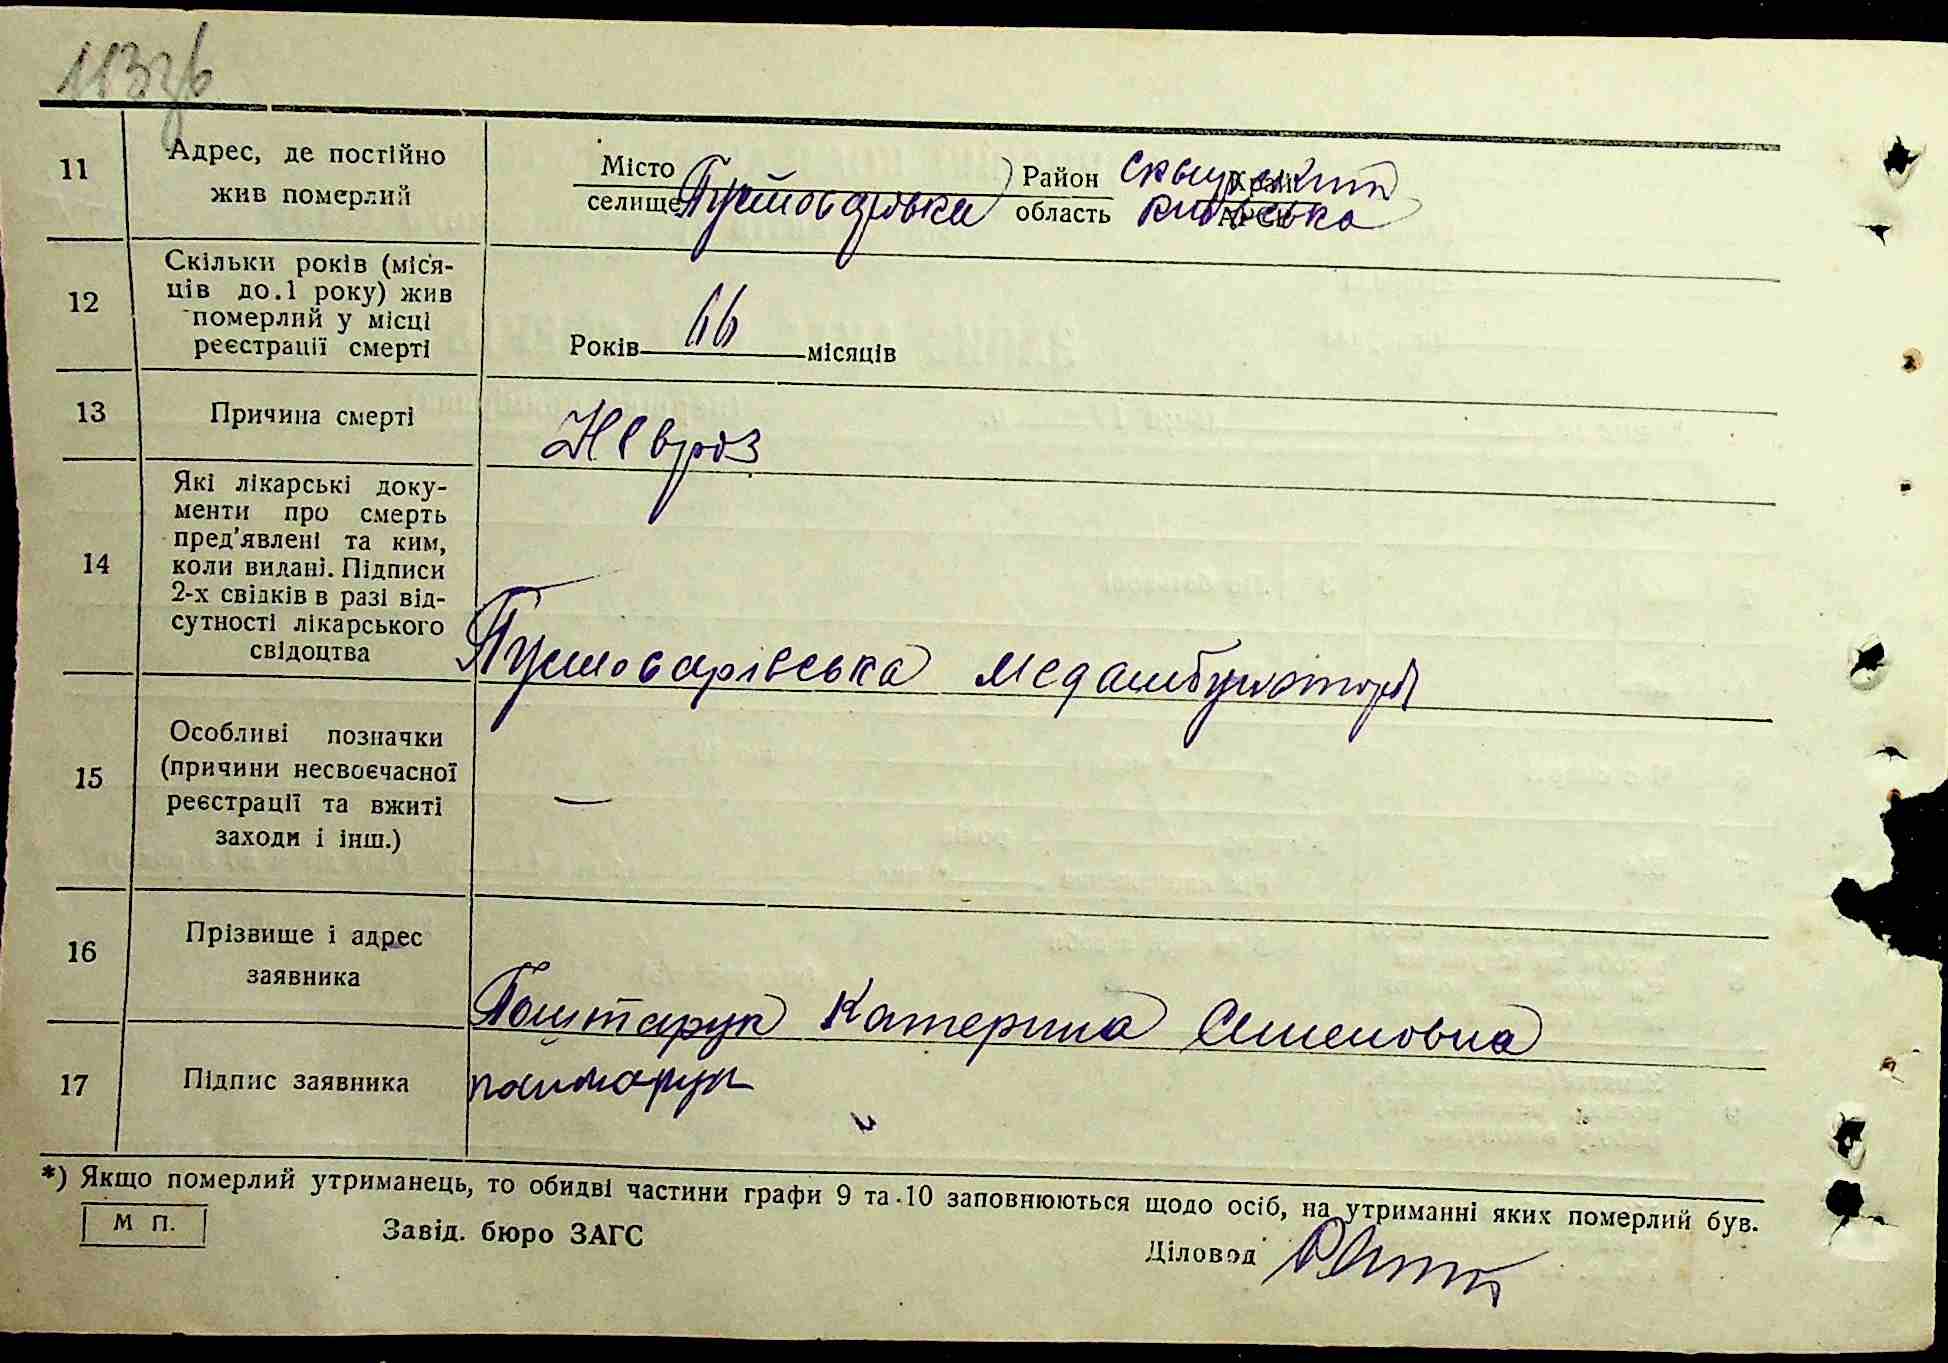 113зв
11 Адрес, де постійно жив померлий
Місто Район Сквирский Край
селище Пустоварівка область київська АРСР
12 Скільки років (міся-
ців до 1 року) жив
померлий у місці
реєстрації смерті
Років 66 місяців
13 Причина смерті Невроз
14 Які лікарські доку-
менти про смерть
пред'явлені та ким,
коли видані. Підписи
2-х свідків в разі від-
сутності лікарського
свідоцтва
Пустоварівська медамбулаторія
15 Особливі позначки
(причини несвоєчасної
реєстрації та вжиті
заходи і інш.)
—
16 Прізвище і адрес
заявника
Поштарук Катерина Семеновна
17 Підпис заявника поштарук
*) Якщо померлий утриманець, то обидві частини графи 9 та 10 заповнюються щодо осіб, на утриманні яких померлий був.
М П. Завід. бюро ЗАГС
Діловод